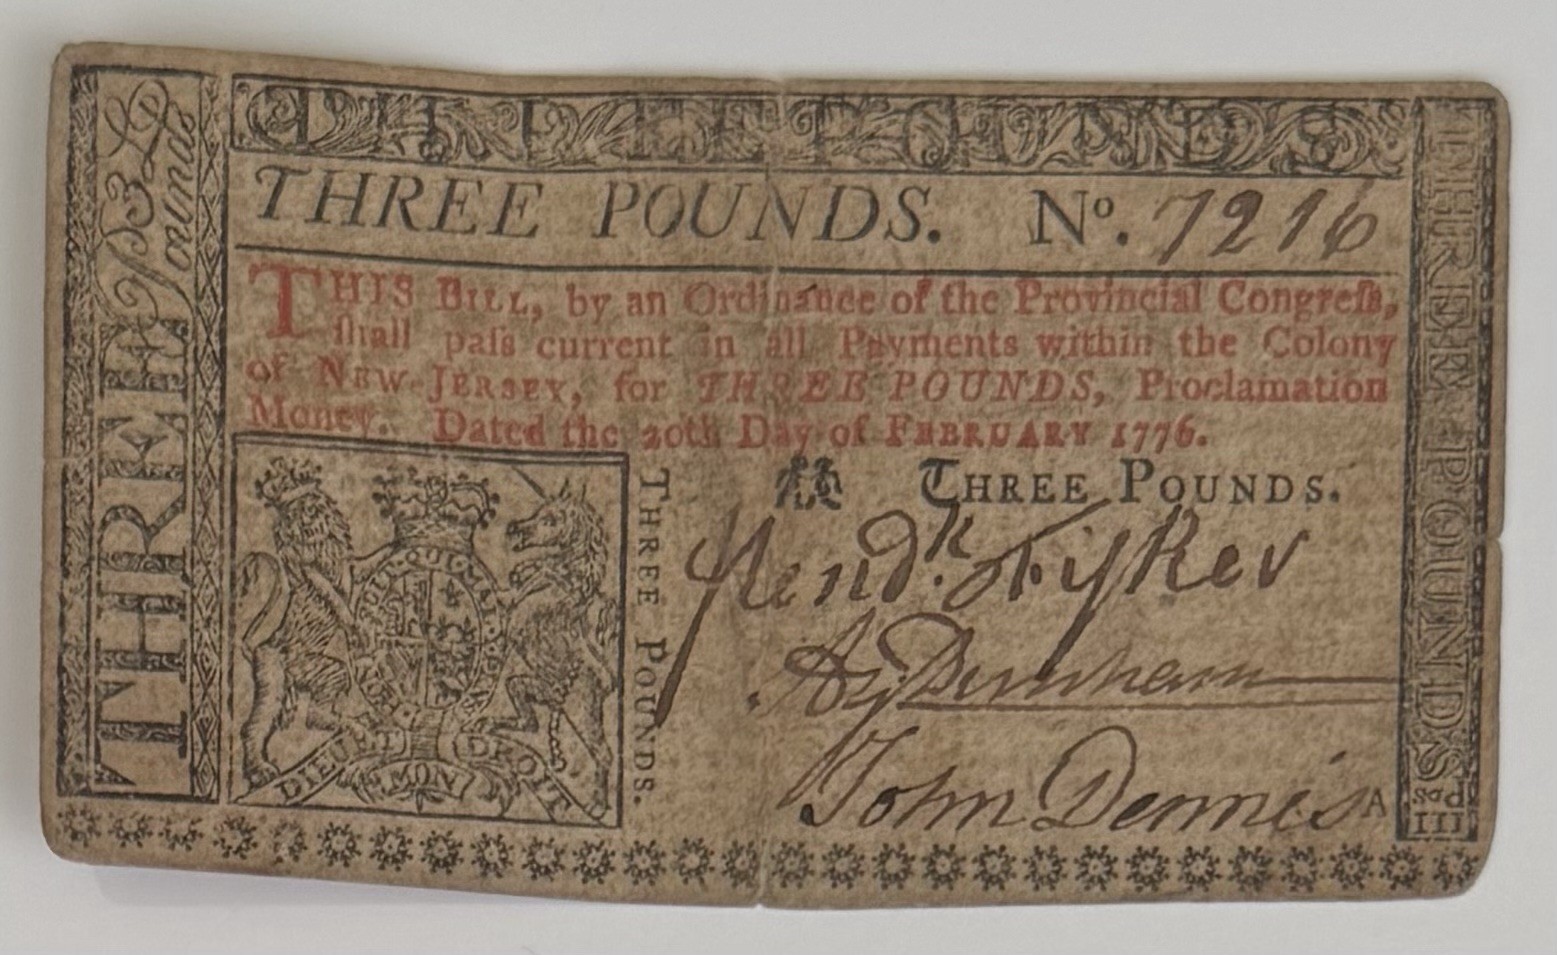 THREE POUNDS
THREE POUNDS. Nº. 7216
THIS BILL, by an Ordinance of the Provincial Congreſs,
ſhall paſs current in all Payments within the Colony
of NEW-JERSEY, for THREE POUNDS, Proclamation
Money. Dated the 20th Day of FEBRUARY 1776.
THREE POUNDS.
Hendk. Fiſher
Az Dunham
John Dennis A
THREE POUNDS.
DIEU ET MON DROIT
THREE Pounds
THREE POUNDS
III